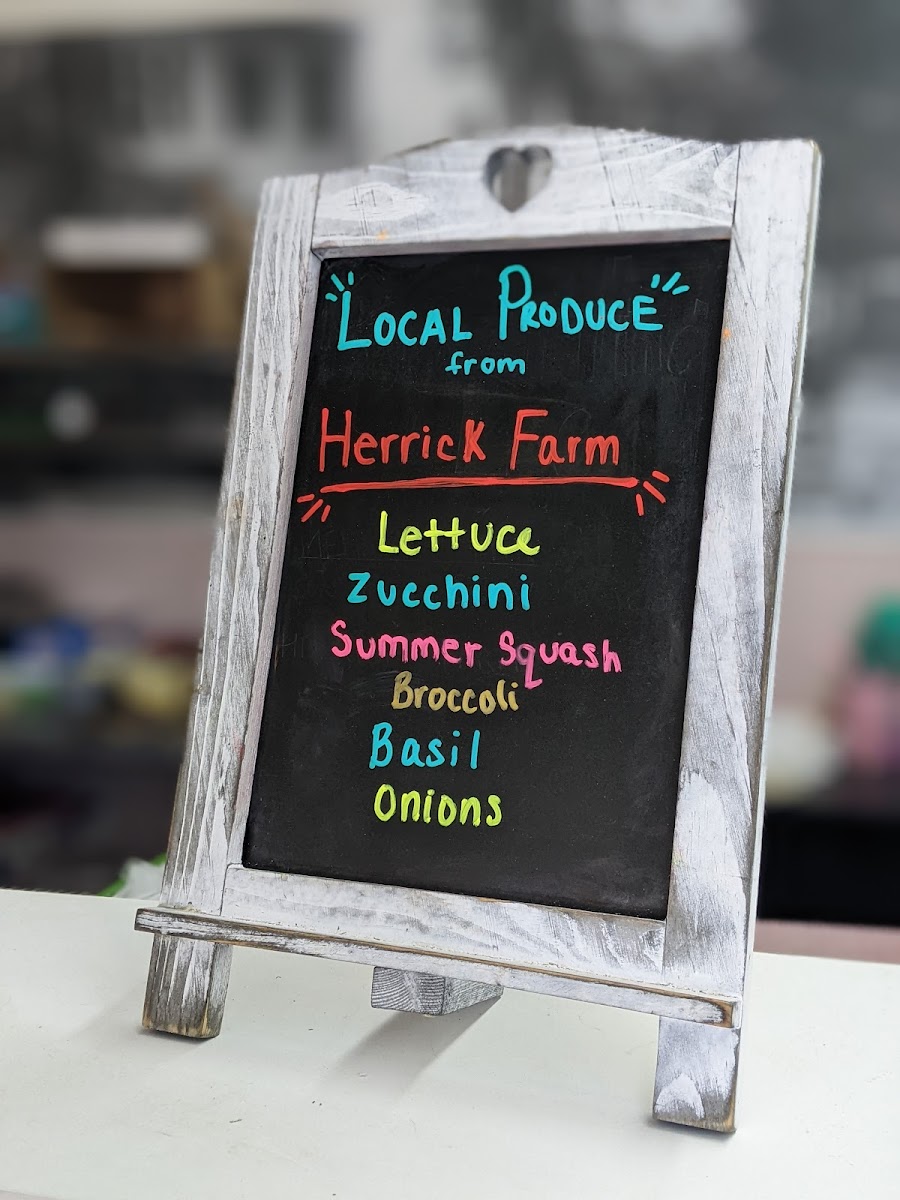 "LOCAL PRODUCE"
from
Herrick Farm
Lettuce
Zucchini
Summer Squash
Broccoli
Basil
Onions